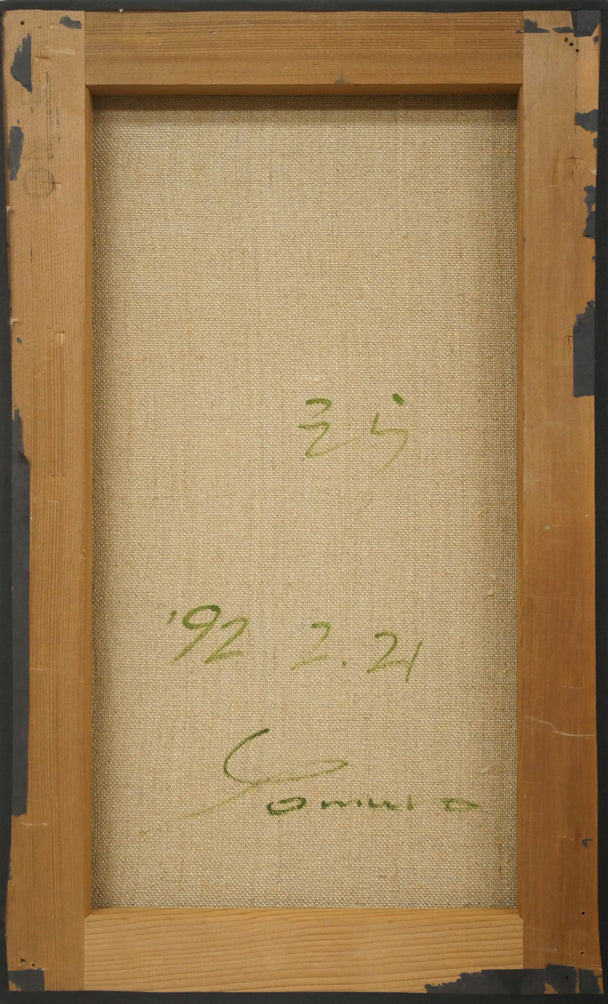 '92 2.21
Somura